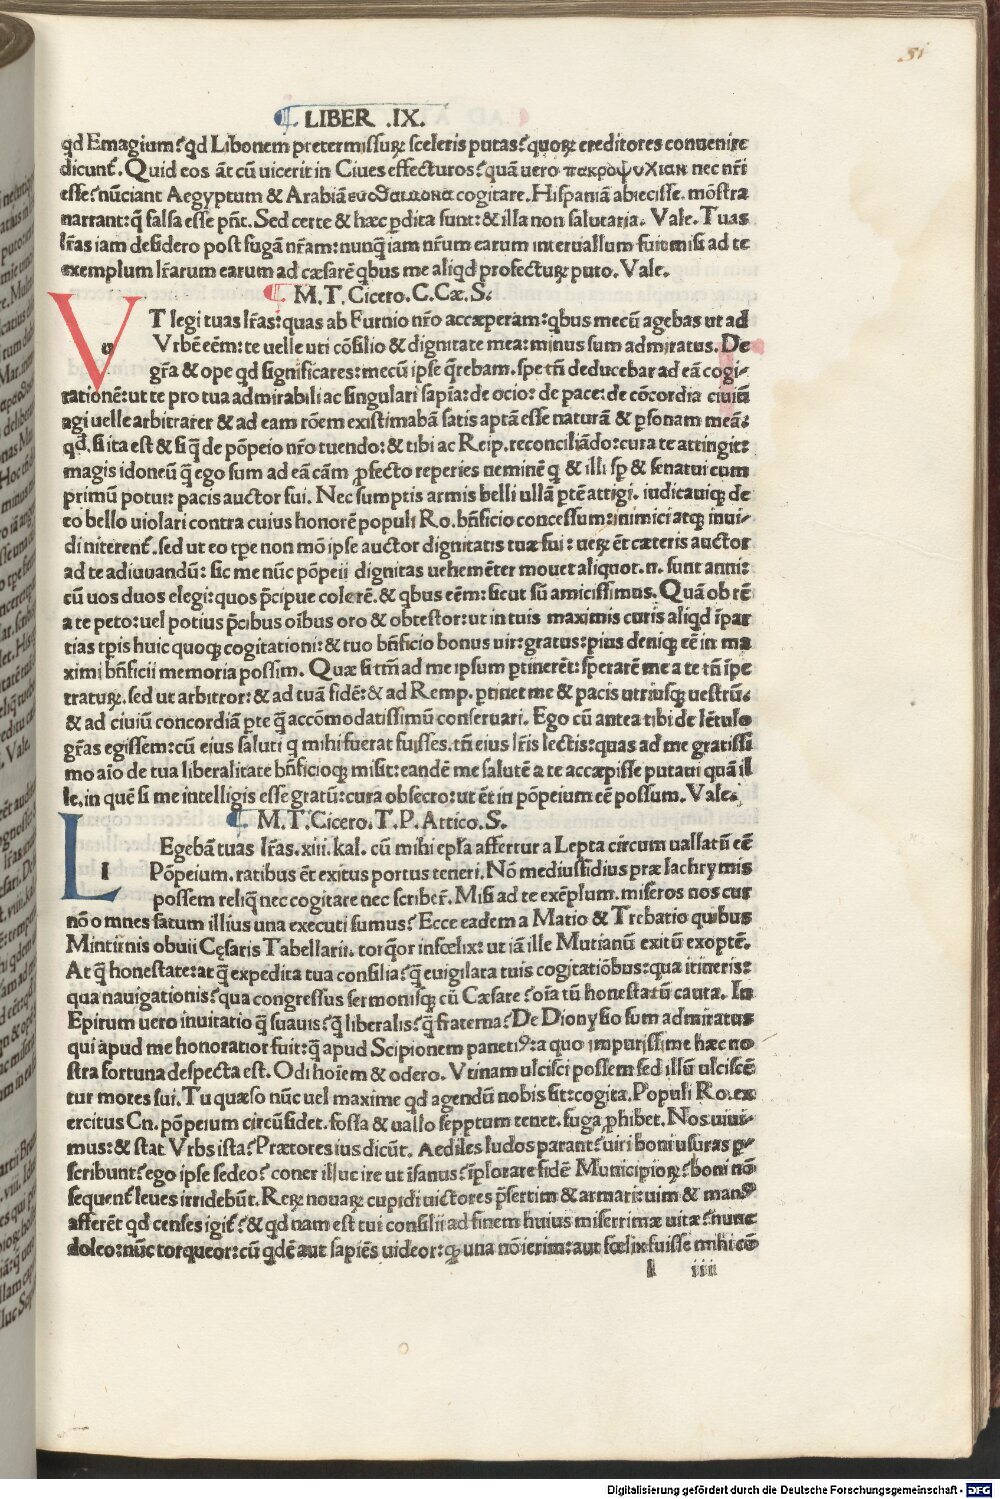 51
LIBER .IX.
qd Emagium? qd Libonem pretermissurꝝ sceleris putas? quorꝝ creditores conuenire
dicunt̃. Quid eos át cũ uicerit in Ciues effecturos? quã uero πακροψυχιαν nec nr̃i
esse? nũciant Aegyptum & Arabiã ευσθαιμονα cogitare. Hispaniã abiecisse. mõstra
narrant: q̃ falsa esse pñt. Sed certe & hæc ꝑdita sunt: & illa non salutaria. Vale. Tuas
lr̃as iam desidero post fugã nr̃am: nunq̃ iam nr̃um earum interuallum fuit misi ad te
exemplum lr̃arum earum ad cæsarẽ qbus me aliqd profecturꝝ puto. Vale.
M.T. Cicero. C. Cæ. S.
V T legi tuas lr̃as: quas ab Furnio nr̃o accæperam: qbus mecũ agebas ut ad
u Vrbẽ eẽm: te uelle uti cõsilio & dignitate mea: minus sum admiratus. De
gr̃a & ope qd significares: mecũ ipse q̃rebam. spe tñ deducebar ad eã cogi-
rationẽ: ut te pro tua admirabili ac singulari sapĩa: de ocio: de pace: de cõcordia ciuiũ
agi uelle arbitrarer & ad eam rõem existimabã satis aptã esse naturã & ꝑsonam meã.
qd. si ita est & si q̃ de põpeio nr̃o tuendo: & tibi ac Reip. reconciliãdo: cura te attingit:
magis idoneũ q̃ ego sum ad eã cãm ꝓfecto reperies neminẽ q & illi sꝑ & senatui cum
primũ potui: pacis auctor fui. Nec sumptis armis belli ullã ptẽ attigi. iudicauiqꝫ de
eo bello uiolari contra cuius honorẽ populi Ro. bñficio concessum: inimici atqꝫ inui-
di niterent̃. sed ut eo tpe non mõ ipse auctor dignitatis tuæ fui: uerꝝ ẽt cæteris auctor
ad te adiuuandũ: sic me nũc põpeii dignitas uehemẽter mouet aliquot .n. sunt anni:
cũ uos duos elegi: quos p̃cipue colerẽ. & qbus eẽm: sicut sũ amicissimus. Quã ob rẽ
a te peto: uel potius p̃cibus oĩbus oro & obtestor: ut in tuis maximis curis aliqd ĩpar
tias tꝑis huic quoqꝫ cogitationi: & tuo bñficio bonus uir: gratus: pius deniqꝫ eẽ in ma
ximi bñficii memoria possim. Quæ si tm̃ ad me ipsum ꝑtinerẽt: sperarẽ me a te tñ ĩpe
traturꝝ. sed ut arbitror: & ad tuã fidẽ: & ad Remp. ꝑtinet me & pacis utriusqꝫ uestrũ.
& ad ciuiũ concordiã ꝑ te q̃ accõmodatissimũ conseruari. Ego cũ antea tibi de lẽtulo
gr̃as egissem: cũ eius saluti q mihi fuerat fuisses. tñ eius lr̃is lectis: quas ad me gratissi
mo aĩo de tua liberalitate bñficioqꝫ misit: eandẽ me salutẽ a te accæpisse putaui quã il
le. in quẽ si me intelligis esse gratũ: cura obsecro: ut ẽt in põpeium eẽ possum. Vale.
M.T. Cicero. T. P. Attico. S.
L Egebã tuas lr̃as .xiii. kal. cũ mihi epl̃a affertur a Lepta circum uallatũ eẽ
l Põpeium. ratibus ẽt exitus portus teneri. Nõ mediusfidius præ lachrymis
possem reliq̃ nec cogitare nec scriber̃. Misi ad te exẽplum. miseros nos cur
nõ omnes fatum illius una executi sumus? Ecce eadem a Matio & Trebatio quibus
Mintirnis obuii Cęsaris Tabellarii. torq̃or infœlix: ut iã ille Mutianũ exitũ exoptẽ.
At q̃ honestate: at q̃ expedita tua consilia? q̃ euigilata tuis cogitatiõbus: qua itineris:
qua nauigationis? qua congressus sermonisqꝫ cũ Cæsare? oĩa tũ honesta tũ cauta. In
Epirum uero inuitatio q̃ suauis? q̃ liberalis? q̃ fraterna? De Dionysio sum admiratus
qui apud me honoratior fuit: q̃ apud Scipionem paneti⁹: a quo impurissime hæc no
stra fortuna despecta est. Odi hoĩem & odero. Vtinam ulcisci possem sed illũ ulciscẽ
tur mores sui. Tu quæso nũc uel maxime qd agendũ nobis sit: cogita. Populi Ro. ex
ercitus Cn. põpeium circũsidet. fossa & uallo sepptum tenet. fuga ꝓhibet. Nos uiui-
mus: & stat Vrbs ista? Prætores ius dicũt. Aediles ludos parant? uiri boni usuras ꝑ-
scribunt? ego ipse sedeo? coner illuc ire ut ĩsanus? ĩplorare fidẽ Municipiorꝝ? boni nõ
sequent̃ leues irridebũt. Rerꝝ nouarꝝ cupidi uictores p̃sertim & armati: uim & man⁹
afferẽt qd censes igit̃? & qd nam est tui consilii ad finem huius miserrimæ uitæ? nunc
doleo: nũc torqueor: cũ qdẽ aut sapiẽs uideor: qꝫ una nõ ierim: aut fœlix fuisse mihi cõ
l iiii
Digitalisierung gefördert durch die Deutsche Forschungsgemeinschaft - DFG